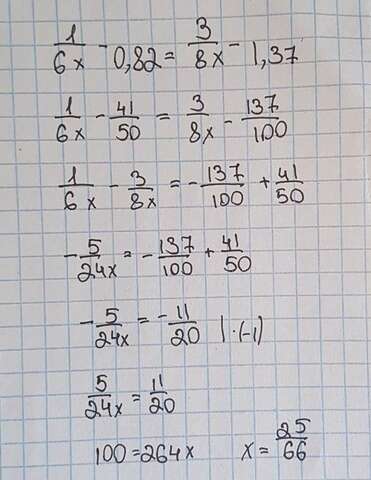 1/6x - 0,82 = 3/8x - 1,37
1/6x - 41/50 = 3/8x - 137/100
1/6x - 3/8x = -137/100 + 41/50
-5/24x = -137/100 + 41/50
-5/24x = -11/20 | ·(-1)
5/24x = 11/20
100 = 264x x = 25/66